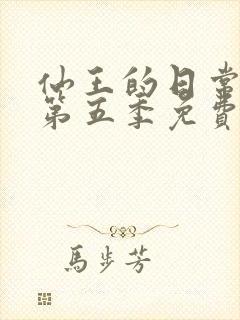 仙王的日常
第五季免費
馬步芳